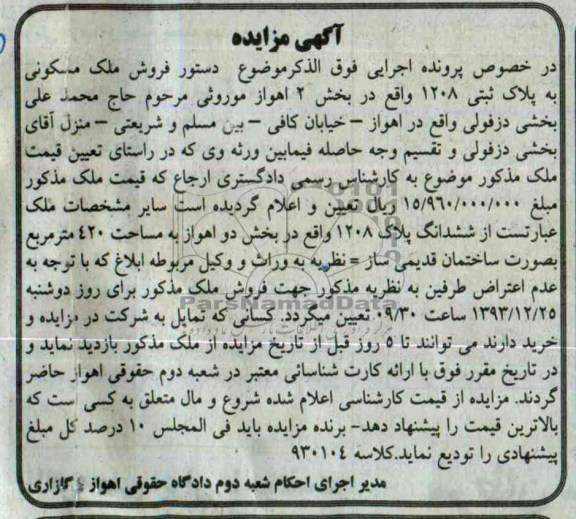 آگهی مزایده
در خصوص پرونده اجرایی فوق الذکرموضوع دستور فروش ملک مسکونی
به پلاک ثبتی ۱۲۰۸ واقع در بخش ۲ اهواز موروثی مرحوم حاج محمد علی
بخشی دزفولی واقع در اهواز – خیابان کافی – بین مسلم و شریعتی – منزل آقای
بخشی دزفولی و تقسیم وجه حاصله فیمابین ورثه وی که در راستای تعیین قیمت
ملک مذکور موضوع به کارشناس رسمی دادگستری ارجاع که قیمت ملک مذکور
مبلغ ۱۵/۹۶۰/۰۰۰/۰۰۰ ریال تعیین و اعلام گردیده است سایر مشخصات ملک
عبارتست از ششدانگ پلاک ۱۲۰۸ واقع در بخش دو اهواز به مساحت ۴۲۰ مترمربع
بصورت ساختمان قدیمی ساز = نظریه به وراث و وکیل مربوطه ابلاغ که با توجه به
عدم اعتراض طرفین به نظریه مذکور جهت فروش ملک مذکور برای روز دوشنبه
ParsNamadData
۱۳۹۳/۱۲/۲۵ ساعت ۰۹/۳۰ تعیین میگردد. کسانی که تمایل به شرکت در مزایده و
خرید دارند می توانند تا ۵ روز قبل از تاریخ مزایده از ملک مذکور بازدید نماید و
در تاریخ مقرر فوق با ارائه کارت شناسائی معتبر در شعبه دوم حقوقی اهواز حاضر
گردند. مزایده از قیمت کارشناسی اعلام شده شروع و مال متعلق به کسی است که
بالاترین قیمت را پیشنهاد دهد- برنده مزایده باید فی المجلس ۱۰ درصد کل مبلغ
پیشنهادی را تودیع نماید.کلاسه ۹۳۰۱۰۴
مدیر اجرای احکام شعبه دوم دادگاه حقوقی اهواز گازاری